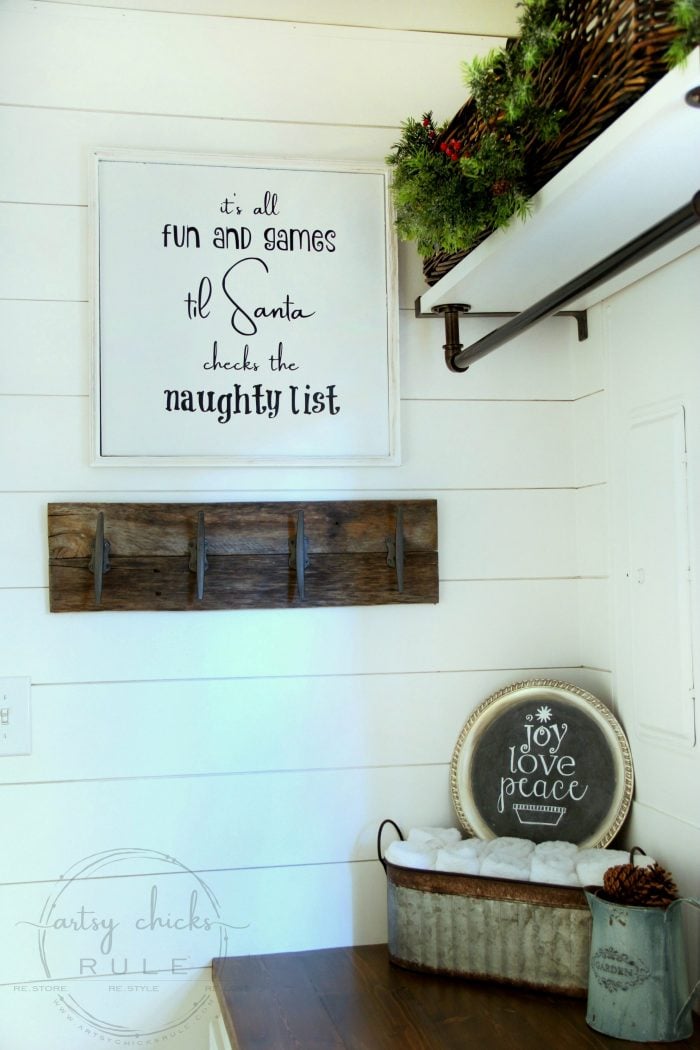 it's all
fun and games
til Santa
checks the
naughty list
joy
love
peace
GARDEN
artsy chicks
RULE
RE.STORE RE.STYLE RE.DESIGN
WWW.ARTSYCHICKSRULE.COM